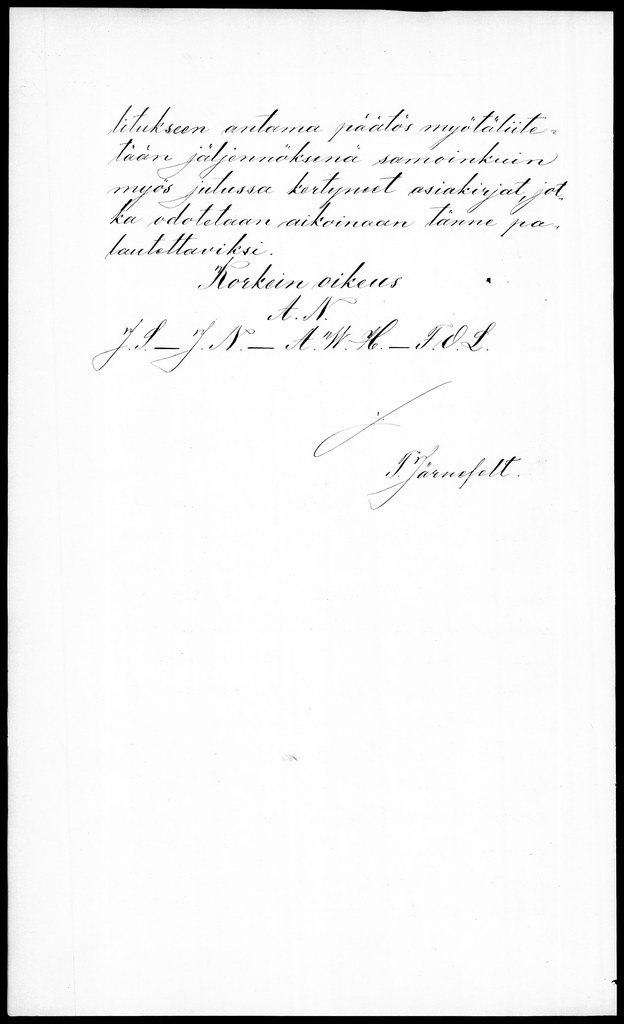 litukseen antama päätös myötäliite-
tään jäljennöksenä samoinkuin
myös jutussa kertyneet asiakirjat, jot-
ka odotetaan aikoinaan tänne pa-
lautettaviksi.
Korkein oikeus
A. N.
J. S. — J. N. — A. W. H. — T. O. L.
T. Järnefelt.